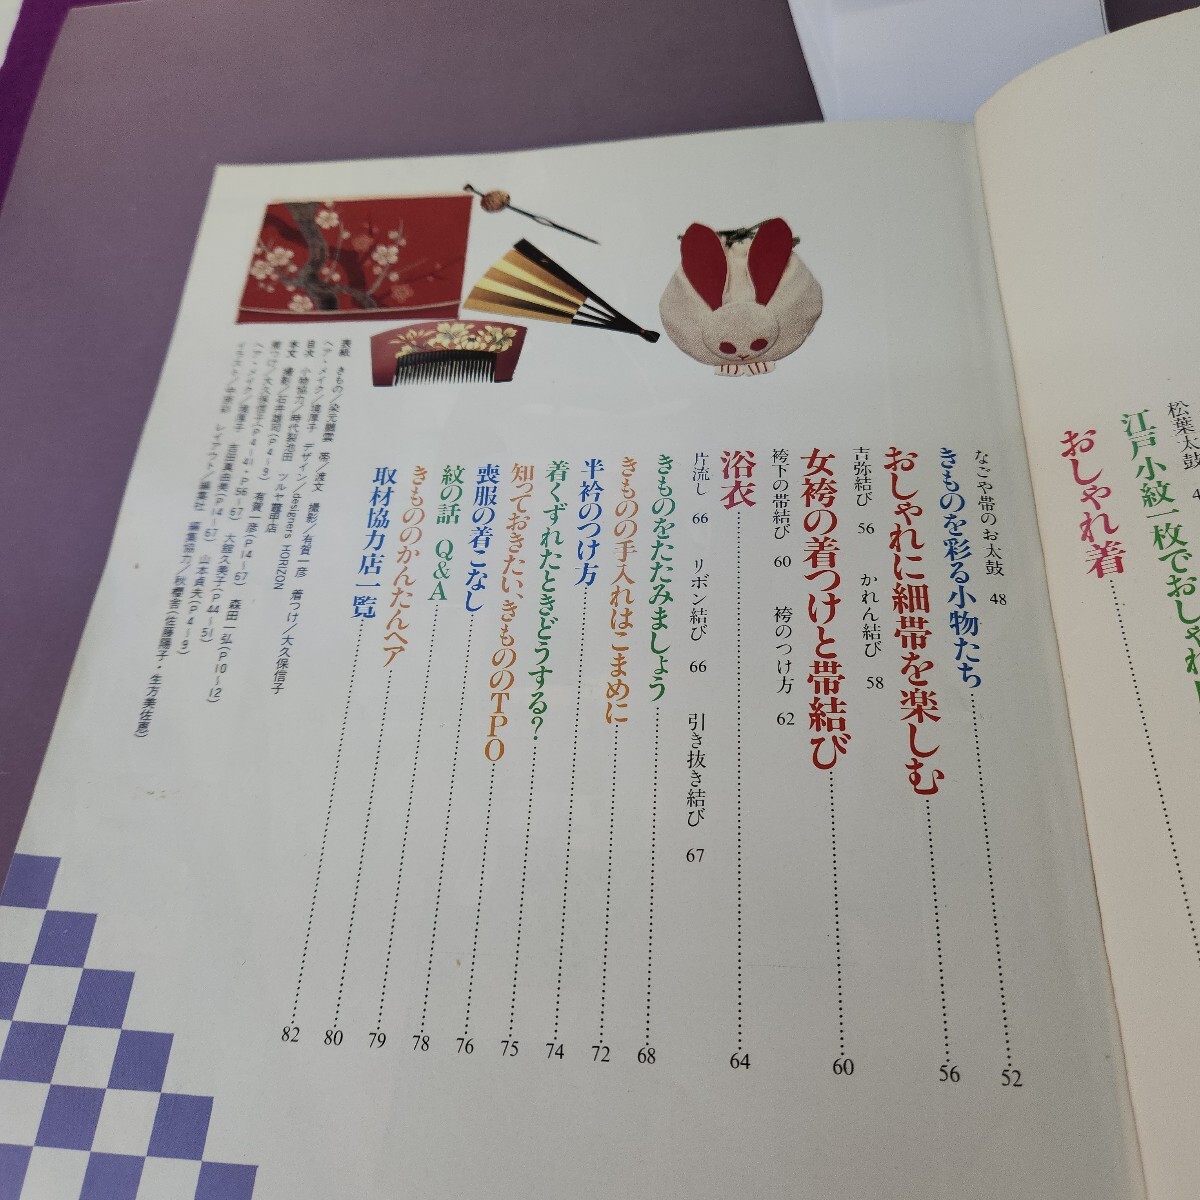 松葉太鼓
江戸小紋一枚でおしゃれに
おしゃれ着
なごや帯のお太鼓 48
きものを彩る小物たち 52
おしゃれに細帯を楽しむ 56
吉弥結び 56 かれん結び 58
女袴の着つけと帯結び 60
袴下の帯結び 60 袴のつけ方 62
浴衣 64
片流し 66 リボン結び 66 引き抜き結び 67
きものをたたみましょう 68
きものの手入れはこまめに 72
半衿のつけ方 74
着くずれたときどうする? 75
知っておきたい、きもののTPO 76
喪服の着こなし 78
紋の話 Q&A 79
きもののかんたんヘア 80
取材協力店一覧 82
表紙 きもの/染元鵬雲 帯/渡文 撮影/有賀一彦 着つけ/大久保信子
ヘア・メイク/境厚子 デザイン/designers HORIZON
目次 小物協力/時代梨池田 ツルヤ鼈甲店
本文 撮影/石井雄司(P4〜9) 有賀一彦(P14〜67) 森田一弘(P10〜12)
着つけ/大久保信子(P4〜41・P56〜67) 大舘久美子(P44〜51)
ヘア・メイク/境厚子 吉田真由美(P14〜67) 山本貞夫(P4〜9)
レイアウト/編集社 編集協力/秋櫻舎(佐藤陽子・生方美佐恵)